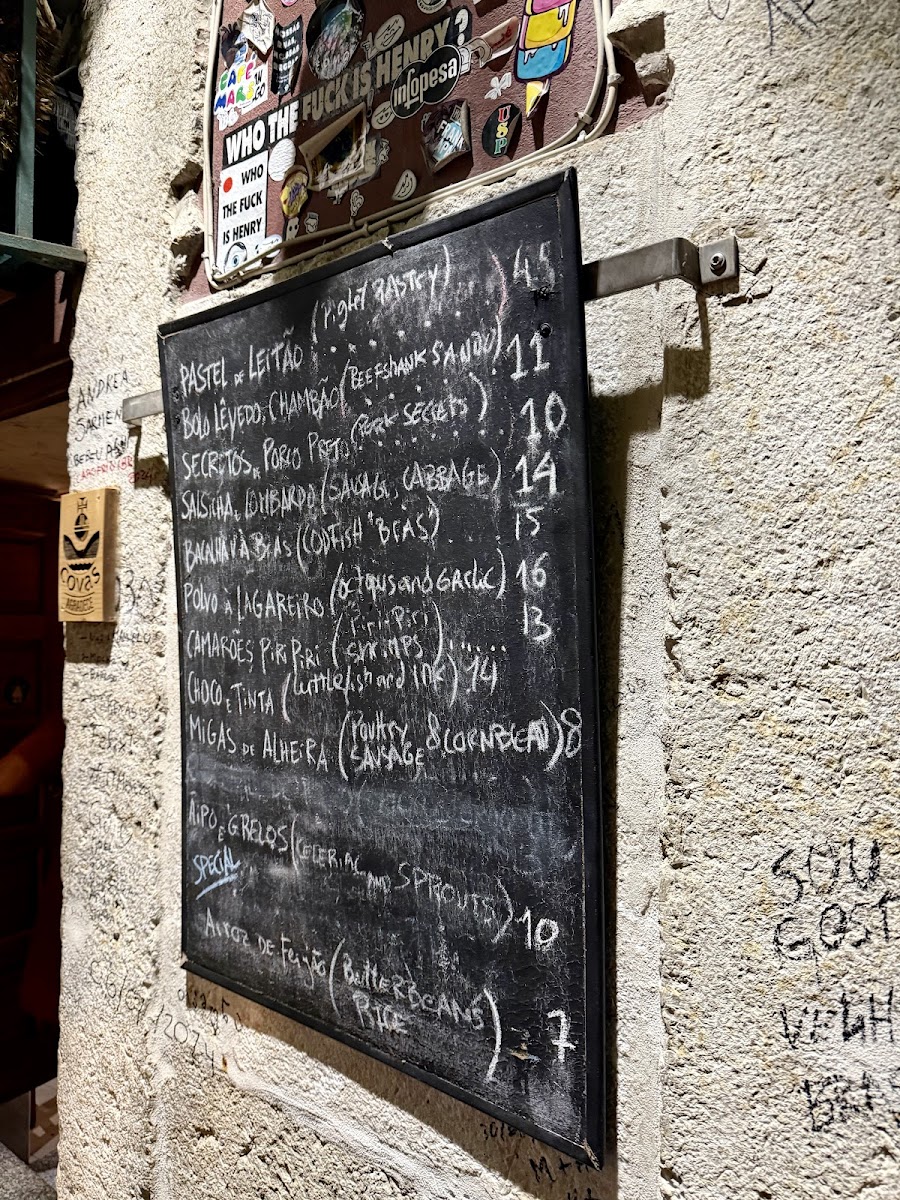 CAFE
MARS
WHO THE FUCK IS HENRY?
infopesa
USP
WHO
THE FUCK
IS HENRY
PASTEL DE LEITÃO (right PASTRY) 4,5
BOLO LÊVEDO, CHAMBÃO (BEEFSHANK SANDU) 11
SECRETOS DE PORCO PRETO (PORK SECRETS) 10
SALSICHA, LOMBARDO (SAUSAGE, CABBAGE) 14
BACALHAU À BRÁS (CODFISH "BRÁS") 15
POLVO À LAGAREIRO (octopus and GARLIC) 16
CAMARÕES PIRI PIRI (PIRI-PIRI shrimps) 13
CHOCO E TINTA (cuttlefish and ink) 14
MIGAS DE ALHEIRA (POULTRY SAUSAGE & CORNBREAD) 8
AIPO E GRELOS (CELERIAC AND SPROUTS) 10
SPECIAL
Arroz DE Feijão (BUTTERBEANS RICE) - 7
ANDREA
COVAS
SOU
GOST
VELH